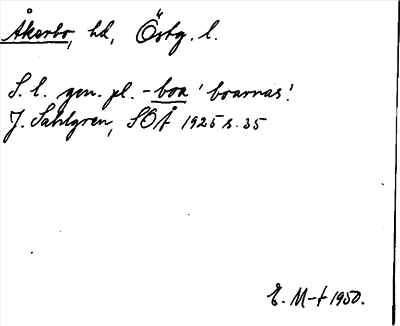 Åkerbo, hd, Östg. l.
S. l. gen. pl. -boa 'boarnas'.
J. Sahlgren, SOÅ 1925 s. 35
E. M-t 1950.